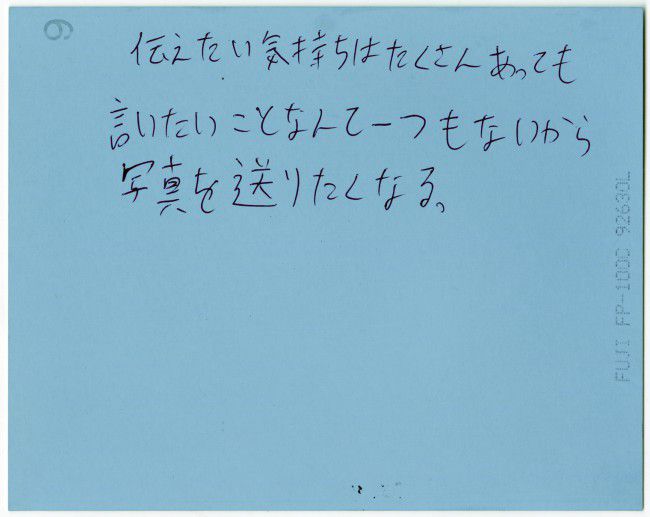 伝えたい気持ちはたくさんあっても
言いたいことなんて一つもないから
写真を送りたくなる。
FUJI FP-100C 92630L
6